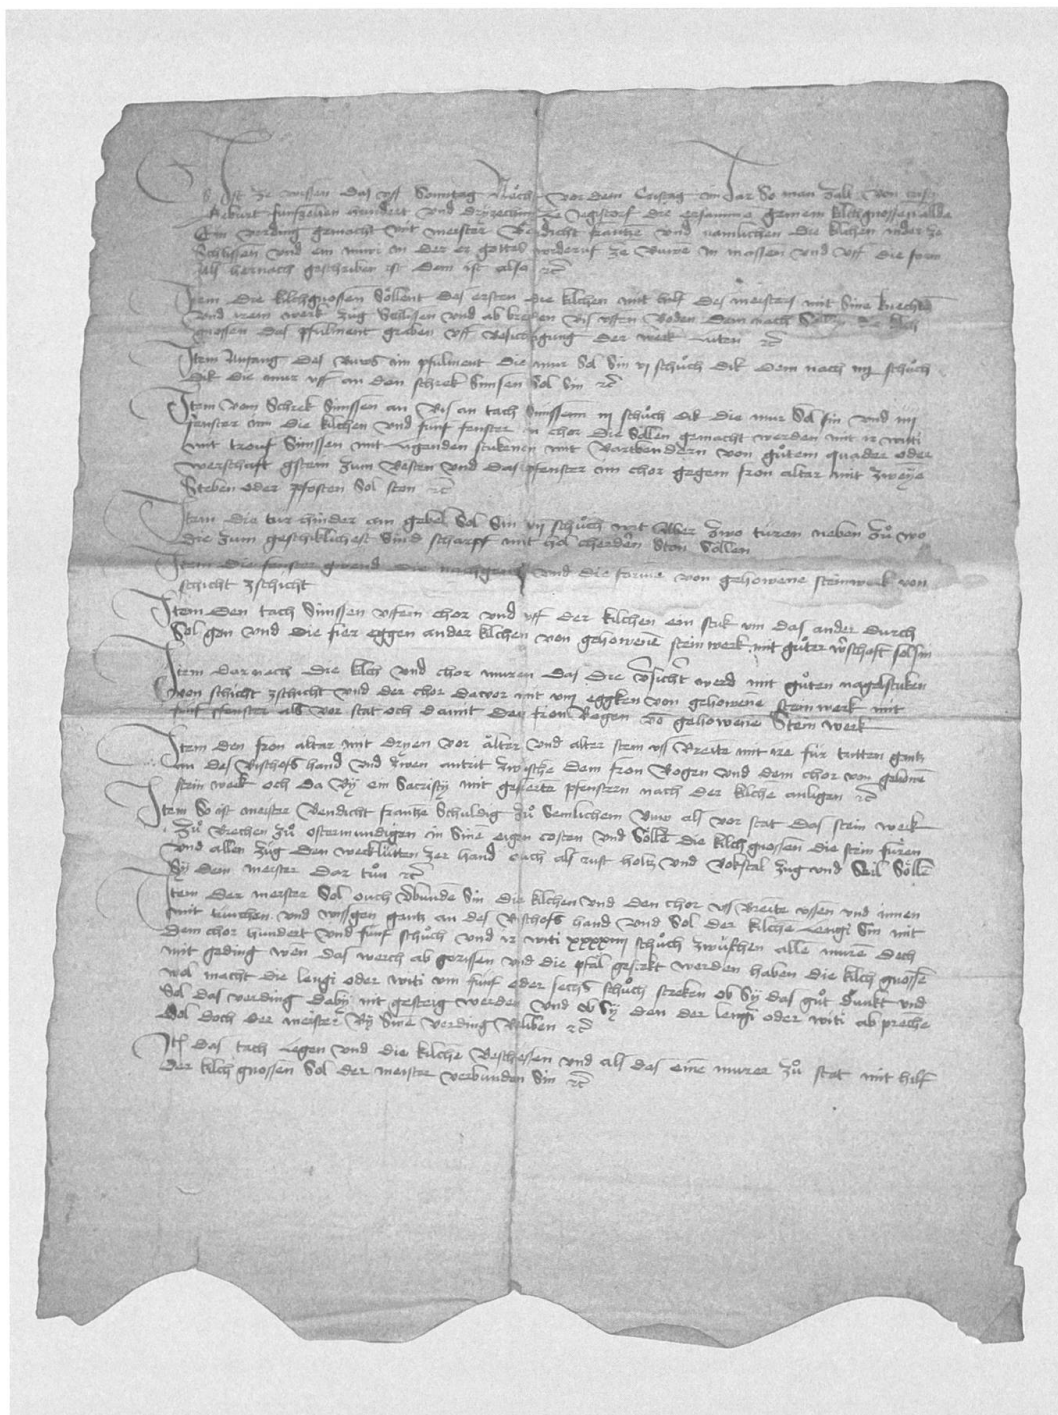 Es ist ze wissen das uff Sonntag Nöchst vor dem Cristag im Jar So man zalt von crist
geburt funfzechen hundert und ze Jegistorf die ersamme gemein kilchgnossen alda
Ein verding gemacht mit meister Bendicht frantze und namlichen die kilchen nider ze
Schlissen und ein nuwi in der er gottes widerumb ze buwe in massen und uff die form
als hernach geschriben ist dem ist also etc
Item die kilchgnossen Söllent des ersten die kilchen mit hilf des meisters mit Sine knechte
und irem werk züg Schlissen und ab brechen bis uffen boden dem nach Sollen die kilch
gnossen das pfulment graben uff besichtigung der werk luten etc
Item Anfang des buws im pfulment die mur Sol Sin vj schůch dik dem nach iiij schůch
dik die mur uff an den schrek Simsen Sol Sin etc
Item vom Schrek Simssen an bis an tach Simssenn iij schůch dik die mur Sol sin und iiij
fenster in die kilchen und funf fenster in chor die Söllen gemacht werden mit ir witi
mit trouf Simssen mit ligenden stukenen mit von gůtem quader oder
werschaft gstein zum besten und das pfenster im chor gegem fron altar mit zweye
Steben oder pfosten Sol ston etc
Item die tur hinder am gebel Sol Sin vij schůch wit Aber zwo turen neben zů wo
die zum geschiklichest Sind scharpf mit hol cherden ston Söllen
Item die fenster gwend die und die forme von gehowene steinwerk von
schicht zschicht
Item den tach Simssen uffem chor und uff der kilchen ein stuk um das ander durch
Sol gan und die fier eggen an der kilchen von gehowene stein werk mit gůter w̃schaft sol sin
Item darnach die kilch und chor muren das die v̈sicht werd mit gůten nagelstuken
von schicht zschicht und der chor davor mit viij eggken von gehowene steinwerk mit
funf pfenster als vor stat och damit den fron bogen vo gehowene Stein werk
Item den fron altar mit dryen vor älter und alter stein uss breite mit ire für tritten gantz
an des bischofs hand und eiwen antrit zwische dem fron bogen und dem chor von gehöwne
stein werk och da by ein Sacristy mit pfenstern nach der kilche anlegen etc
Item So ist meister Bendicht frantze Schuldig zů Semlichem buw als vor stat das stein werk
zů brechen zů ostermundigen in Sine eigen costen und Sölle die kilchgnossen die stein füren
und allen züg den wercklütten zer hand ouch als rust holtz und bokstal züg und Seil Sölle
Sy dem meister dar tůn etc
Item der meister Sol ouch v̈bunde Sin die kilchen und den chor uss breite ussen und innen
mit tünchen und wissgen gantz an des bischofs hand und Sol der kilche Lengi Sin mit
dem chor hundert und funf schůch und ir witi xxxxiiij schůch zwüschen alle mure Doch
mit geding wen das werch ab gerissen und die pfäl gesekt werden haben die kilch gnosse
wol macht die lengi oder witi um funf oder sechs schůch streken ob Sy das gůt dunkt und
Sol das verding daby nit gesteig werden und ob Sy den der lengi oder witi ab preche
Sol doch der meister by Sine verding bliben etc
Ite das tach Legen und die kilche beschiessen und als das eine murer zů stat mit hilf
der kilch gnossen Sol der meister verbunden Sin etc